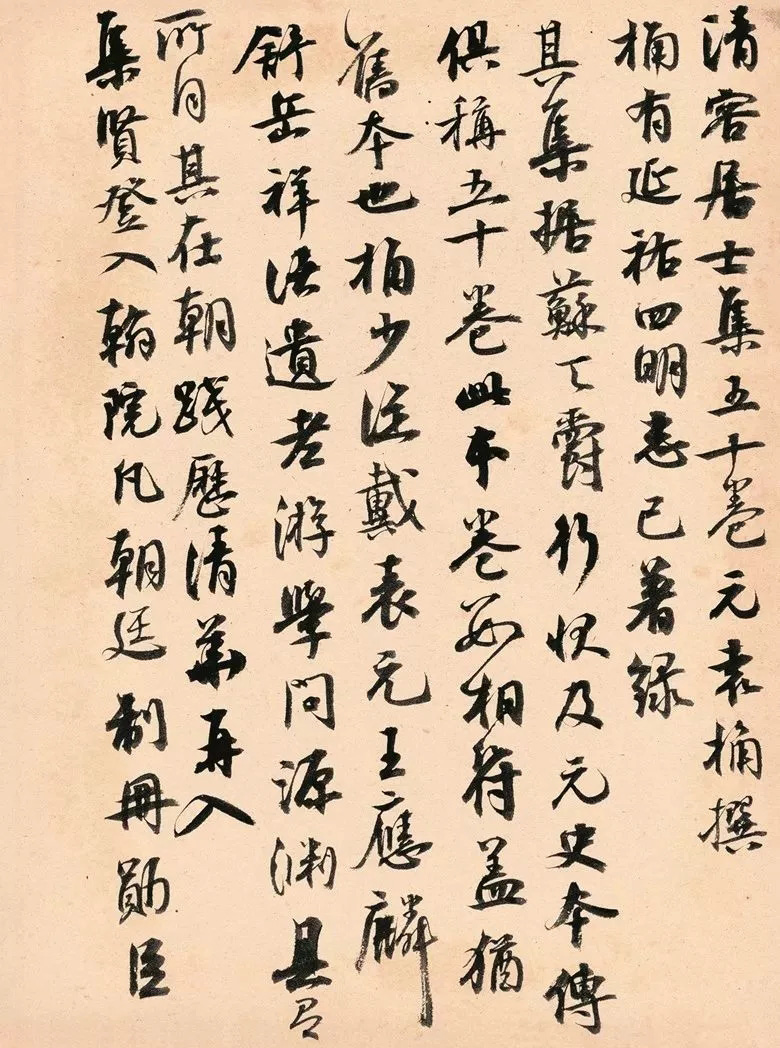 清容居士集五十卷元袁桷撰
桷有延祐四明志已著錄
其集據蘇天爵行狀及元史本傳
俱稱五十卷此本卷數相符蓋猶
舊本也桷少從戴表元王應麟
舒岳祥諸遺老游學問源淵具有
所自其在朝踐歷清華再入
集賢登入翰院凡朝廷制冊勛臣